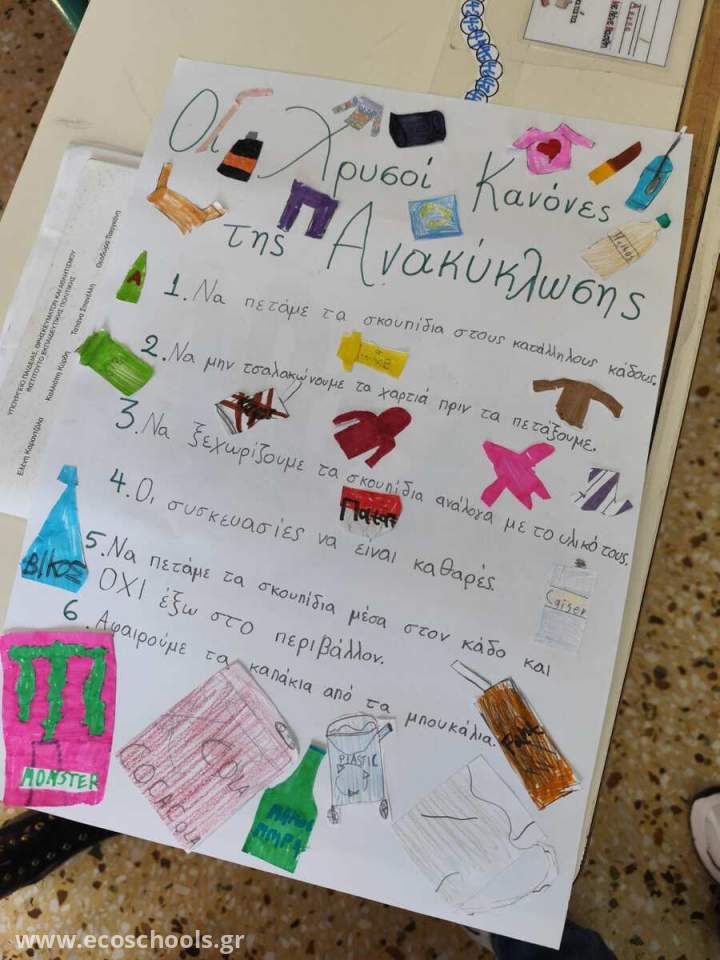 Οι Χρυσοί Κανόνες
της Ανακύκλωσης
1. Να πετάμε τα σκουπίδια στους κατάλληλους κάδους.
2. Να μην τσαλακώνουμε τα χαρτιά πριν τα πετάξουμε.
3. Να ξεχωρίζουμε τα σκουπίδια ανάλογα με το υλικό τους.
4. Οι συσκευασίες να ειναι καθαρές.
5. Να πετάμε τα σκουπίδια μέσα στον κάδο και
ΟΧΙ έξω στο περιβάλλον.
6. Αφαιρούμε τα καπάκια από τα μπουκάλια.
ΒΙΚΟΣ
Caiser
MONSTER
COCA COLA
PLASTIC
ΥΠΟΥΡΓΕΙΟ ΠΑΙΔΕΙΑΣ, ΘΡΗΣΚΕΥΜΑΤΩΝ ΚΑΙ ΑΘΛΗΤΙΣΜΟΥ
ΙΝΣΤΙΤΟΥΤΟ ΕΚΠΑΙΔΕΥΤΙΚΗΣ ΠΟΛΙΤΙΚΗΣ
www.ecoschools.gr